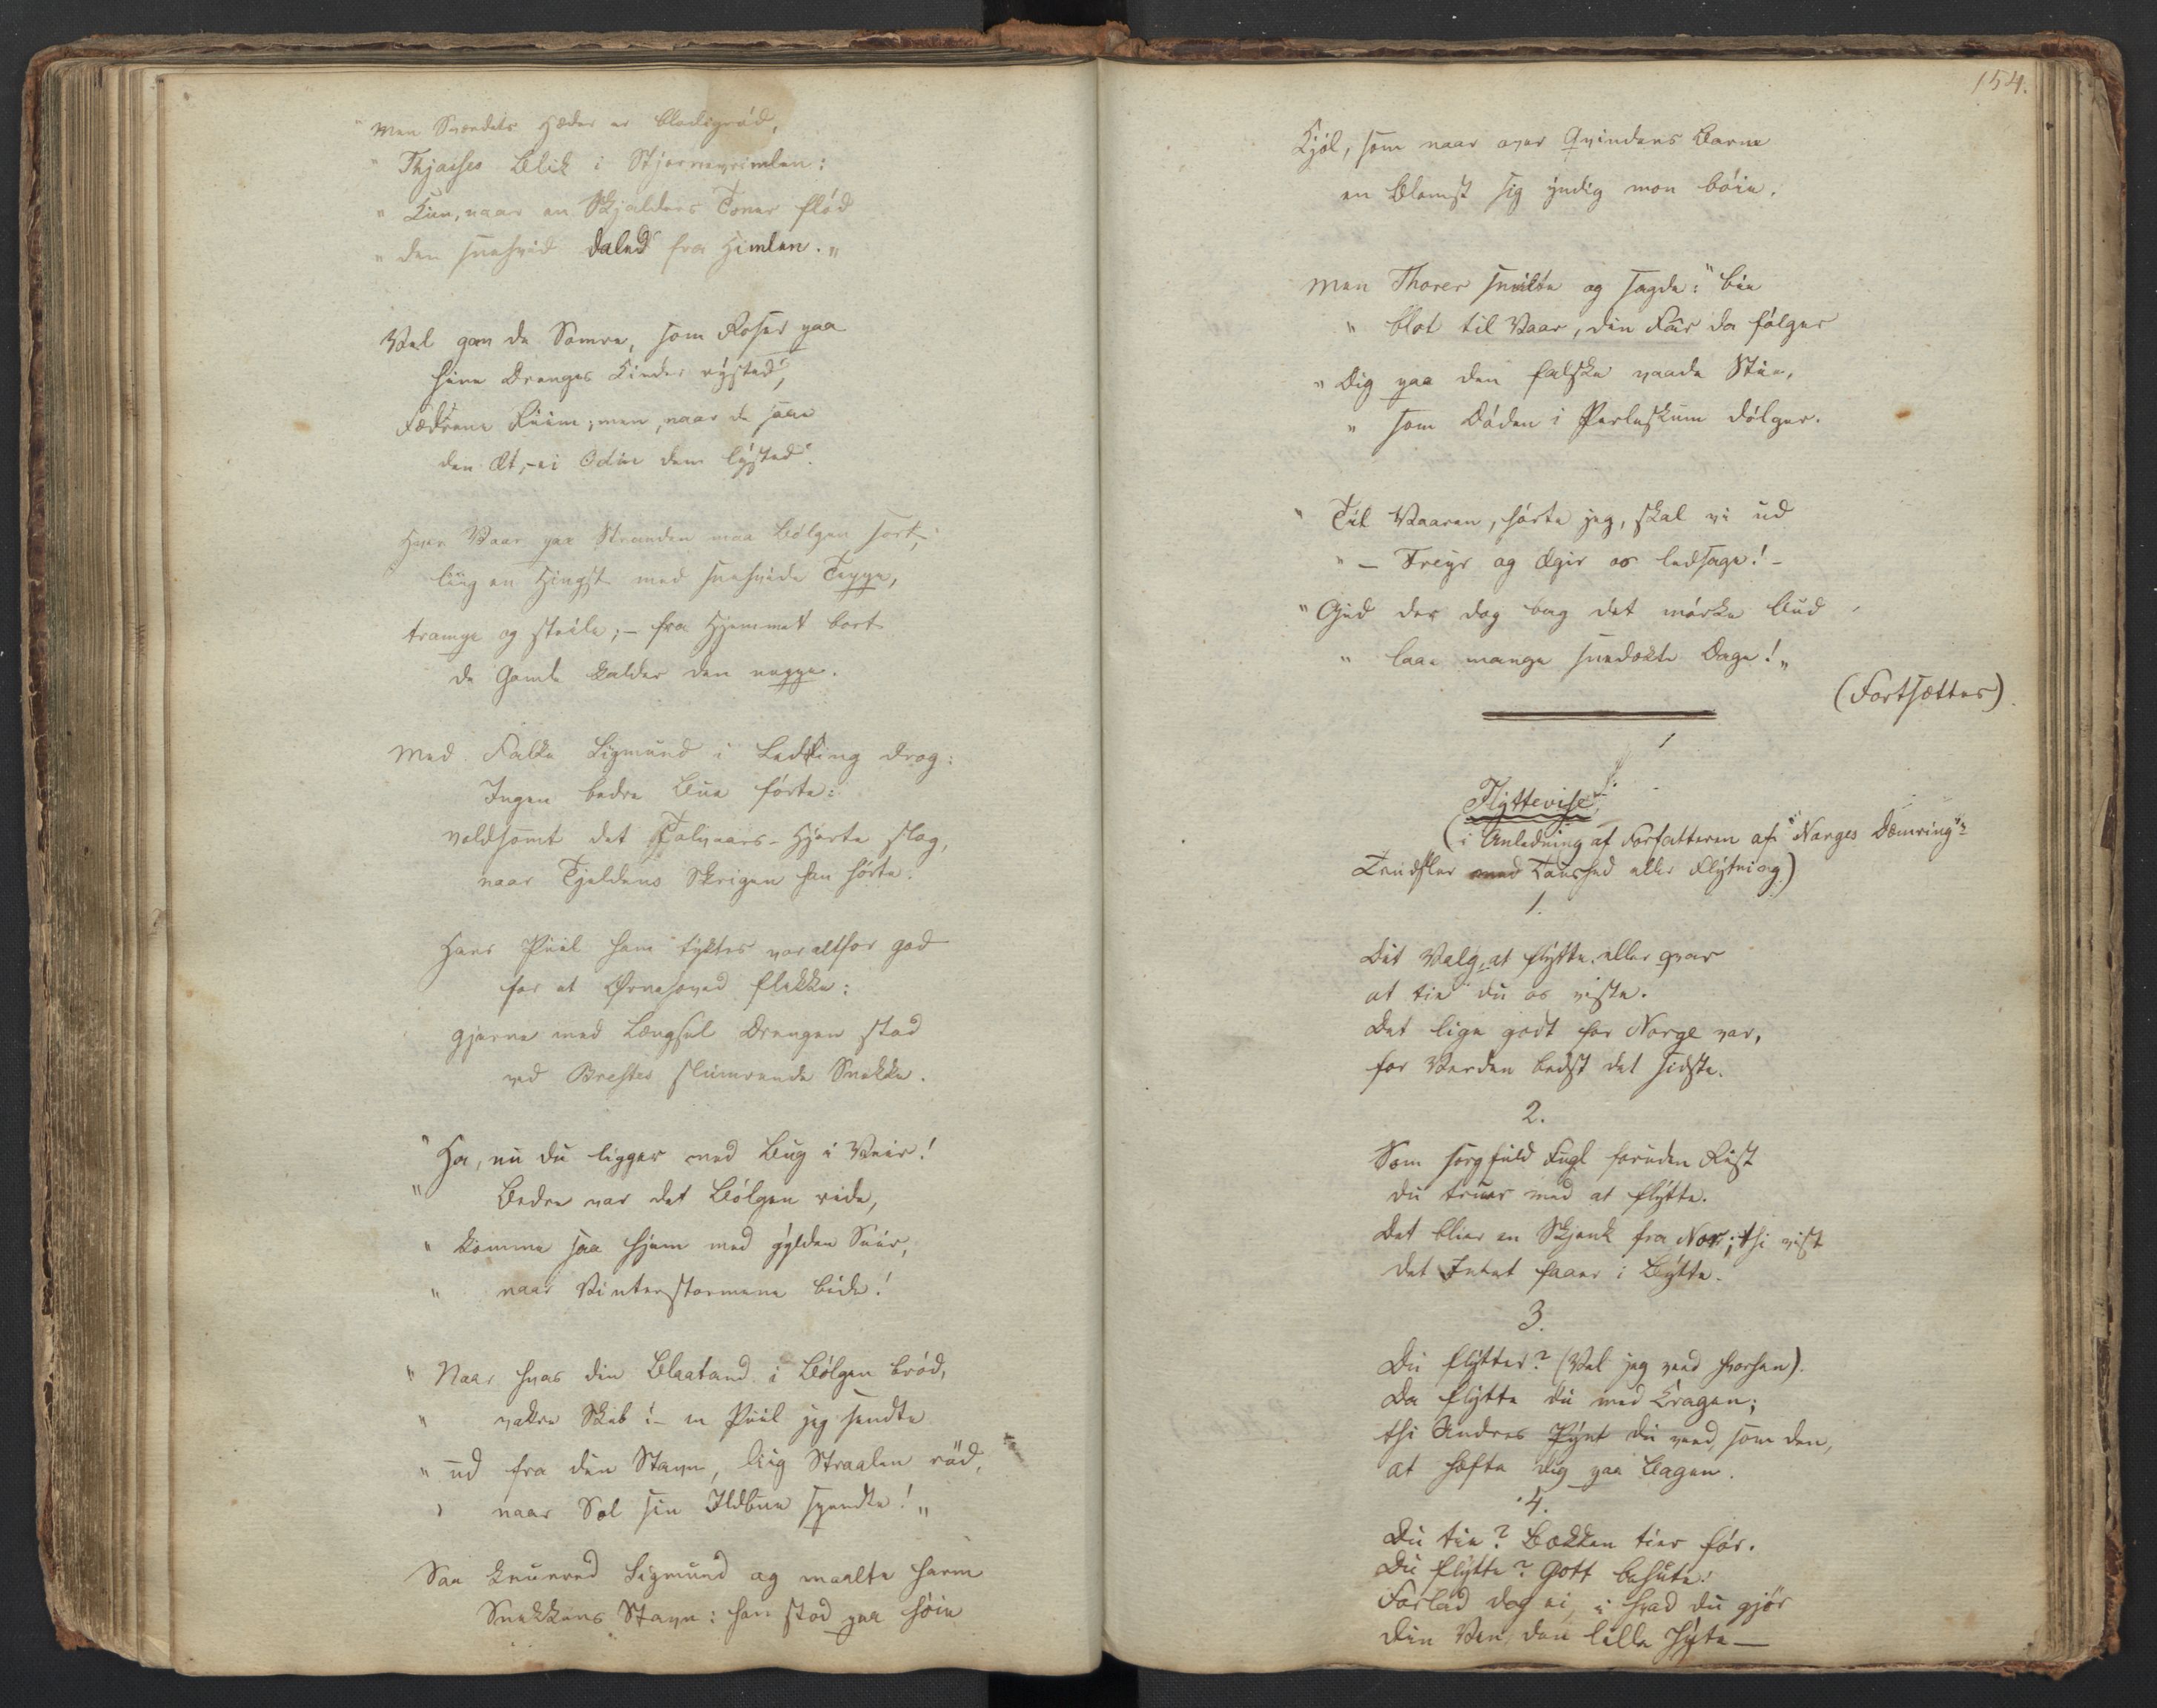 " Men Svendens Hæder er blodigrød,
" Thjasses Blik i Stjernevrimlen:
" Kun, naar en Skjalders Toner flød
" den sneehvid daled' fra Himlen. "
Vel gav de Somre, som Roser paa
hine Drenges Kinder rysted',
Fædrene Riim; men, naar de saae
den Æt, – ei Odin dem lysted'.
Hver Vaar paa Stranden maa Bølgen sort,
liig en Hingst med sneehvide Toppe,
trampe og steile; – fra Hjemmet bort
de Gamle kalder den noppe.
Med Falke Sigmund i Leding drog:
Ingen bedre Bue førte:
voldsomt det Tolvaars-Hjerte slog,
naar Tjeldens Skrigen han hørte.
Hans Piil ham tyktes var altfor god
for at Ørnehoved flekke:
gjerne med Længsel Drengen stod
ved Brestes slumrende Snekke.
" Ha, nu du ligger med Bug i Veir!
" Bedre var det Bølgen ride,
" komme saa hjem med gylden Seir,
" naar Vinterstormene bide!
" Naar hvas din Blaatand i Bølgen brød,
" vakre Skib! – en Piil jeg sendte
" ud fra din Stavn, liig Straalen rød,
" naar Sol sin Ildbue spendte! "
Saa knurred Sigmund og maalte harm
Snekkens Stavn: han stod paa høie
154.
Kjøl, som naar over Qvindens Barm
en Blomst sig yndig mon bøie.
Men Thorer smilte og sagde: " bie
" blot til Vaar, din Faer da følger
" Dig paa den falske vaade Stie,
" som Døden i Perleskum dølger.
" Til Vaaren, hørte jeg, skal vi ud
" – Freyr og Ægir os ledsage! –
" Gid der dog bag det mørke Bud
" laae mange sneedækte Dage! "
(Fortsættes)
1
Flyttevise
(i Anledning af Forfatteren af "Norges Dæmring"s
Trudsler med Taushed eller Flytning)
1.
Dit Valg, at flytte eller qvar
at tie du os viste.
Det lige godt for Norge var,
for Verden bedst det sidste.
2.
Som sorgfuld Fugl foruden Rist
du truer med at flytte.
Det blier en Skjenk fra Nor; thi vist
det Intet faaer i Bytte.
3.
Du flytter? (Vel jeg veed hvorhen).
Da flytte du med Kragen;
thi Andres Pynt du veed, som den,
at hefte dig paa Bagen.
4.
Du tie? Bækken tier før.
Du flytte? Gott behüte!
Forlad dog ei, i hvad du gjør
din Ven, den lille Hyte —